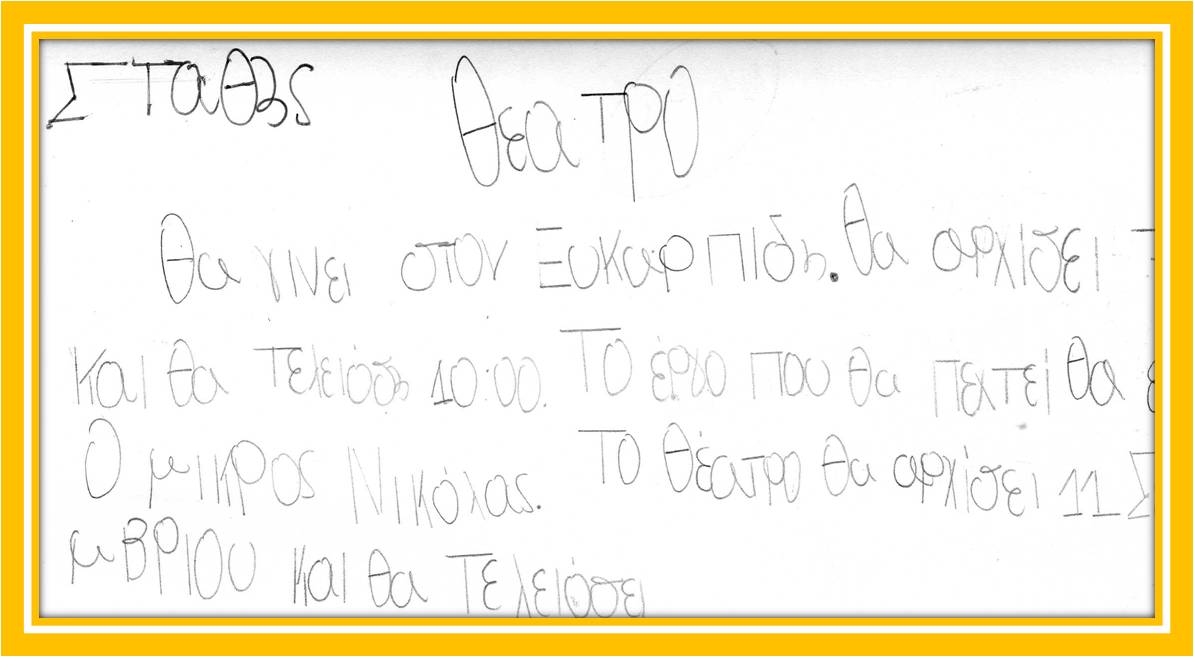 Σταθης
Θεατρο
Θα γινει στον Ευκαρπιδη. Θα αρχίσει
Και θα τελειόση 10:00. Το έργο που θα πεχτεί θα
Ο μικρος Νικόλας. Το Θέατρο θα αρχίσει 11 Σ
μβριου και θα τελειόσει